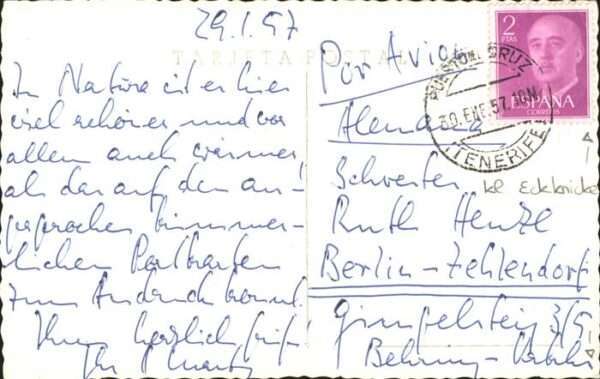 29.1.57
TARJETA POSTAL
In Natura ist es hier
viel schöner und vor
allem auch wärmer,
als das auf den an-
gesprochen kümmer-
lichen Postkarten
zum Ausdruck kommt.
Ihnen herzlich
Ihr
Por Avion
Alemania
Schwester
Ruth Henze
Berlin-Zehlendorf
3/5
Behring-
kl Eckknicke
2
PTAS
ESPAÑA
CORREOS
PUERTO DE LA CRUZ
30.ENE.57.18N
(TENERIFE)